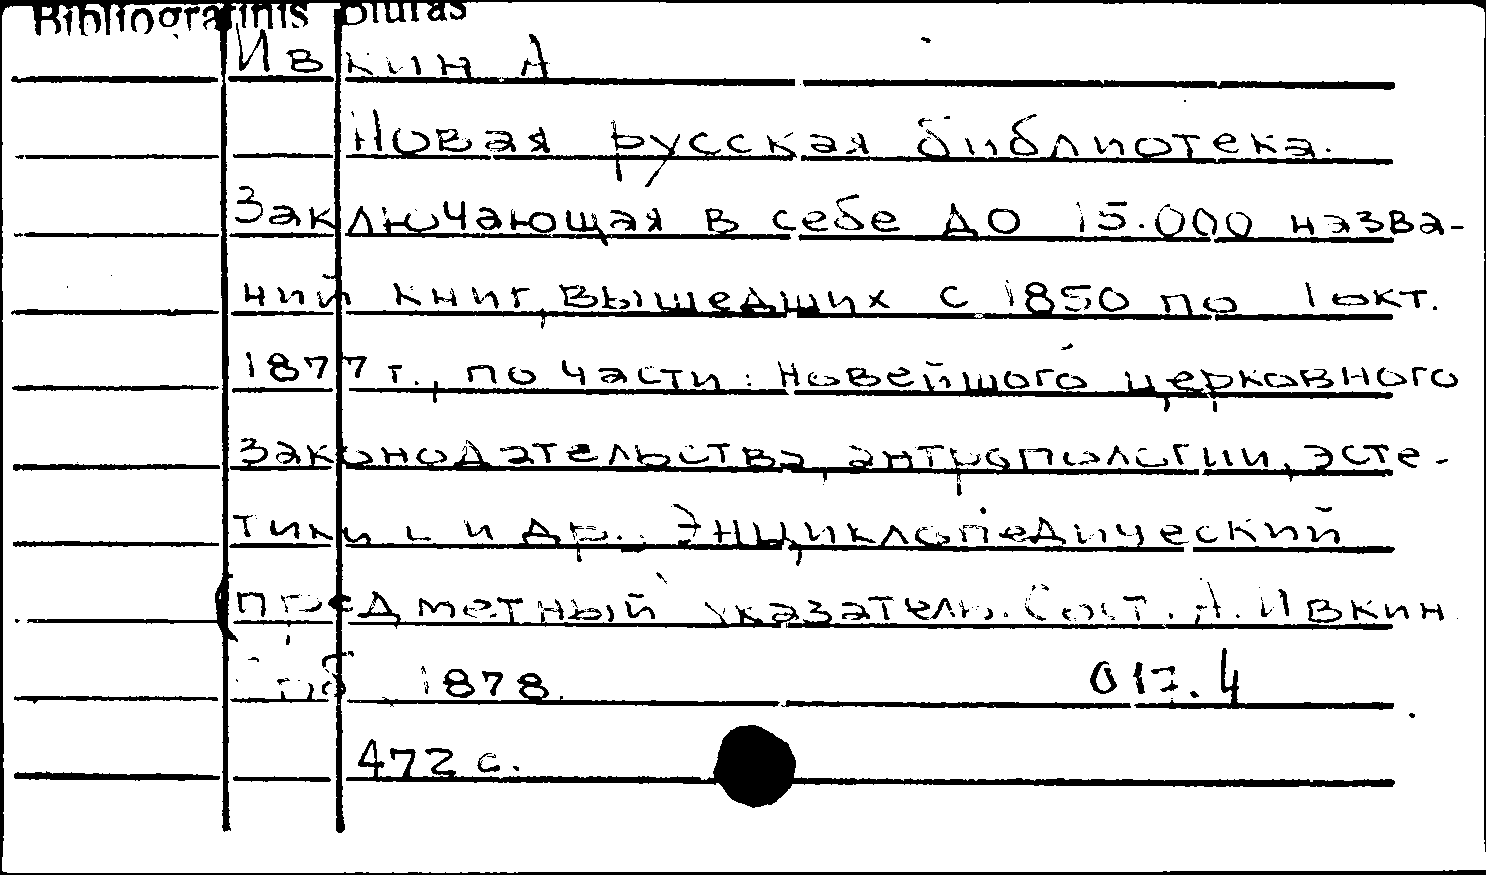 Bibliografinis Biuras
Ивкин А
Новая русская библиотека.
Заключающая в себе до 15.000 назва-
ний книг, вышедших с 1850 по 1 окт.
1877 г., по части: новейшого церковного
законодательства, антропологии, эсте-
тики и др. Энциклопедический
предметный указатель. Сост. А. Ивкин
Спб 1878. 017.4
472 с.